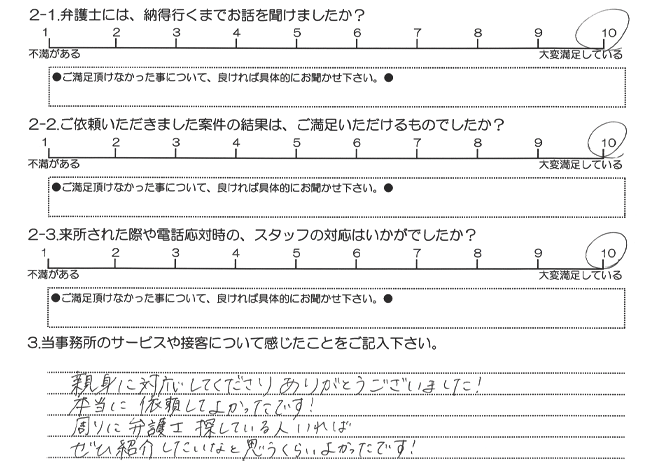 2-1.弁護士には、納得行くまでお話を聞けましたか？
1 2 3 4 5 6 7 8 9 10
不満がある 大変満足している
●ご満足頂けなかった事について、良ければ具体的にお聞かせ下さい。●
2-2.ご依頼いただきました案件の結果は、ご満足いただけるものでしたか？
1 2 3 4 5 6 7 8 9 10
不満がある 大変満足している
●ご満足頂けなかった事について、良ければ具体的にお聞かせ下さい。●
2-3.来所された際や電話応対時の、スタッフの対応はいかがでしたか？
1 2 3 4 5 6 7 8 9 10
不満がある 大変満足している
●ご満足頂けなかった事について、良ければ具体的にお聞かせ下さい。●
3.当事務所のサービスや接客について感じたことをご記入下さい。
親身に対応してくださりありがとうございました！
本当に依頼してよかったです！
周りに弁護士探している人いれば
ぜひ紹介したいなと思うくらいよかったです！